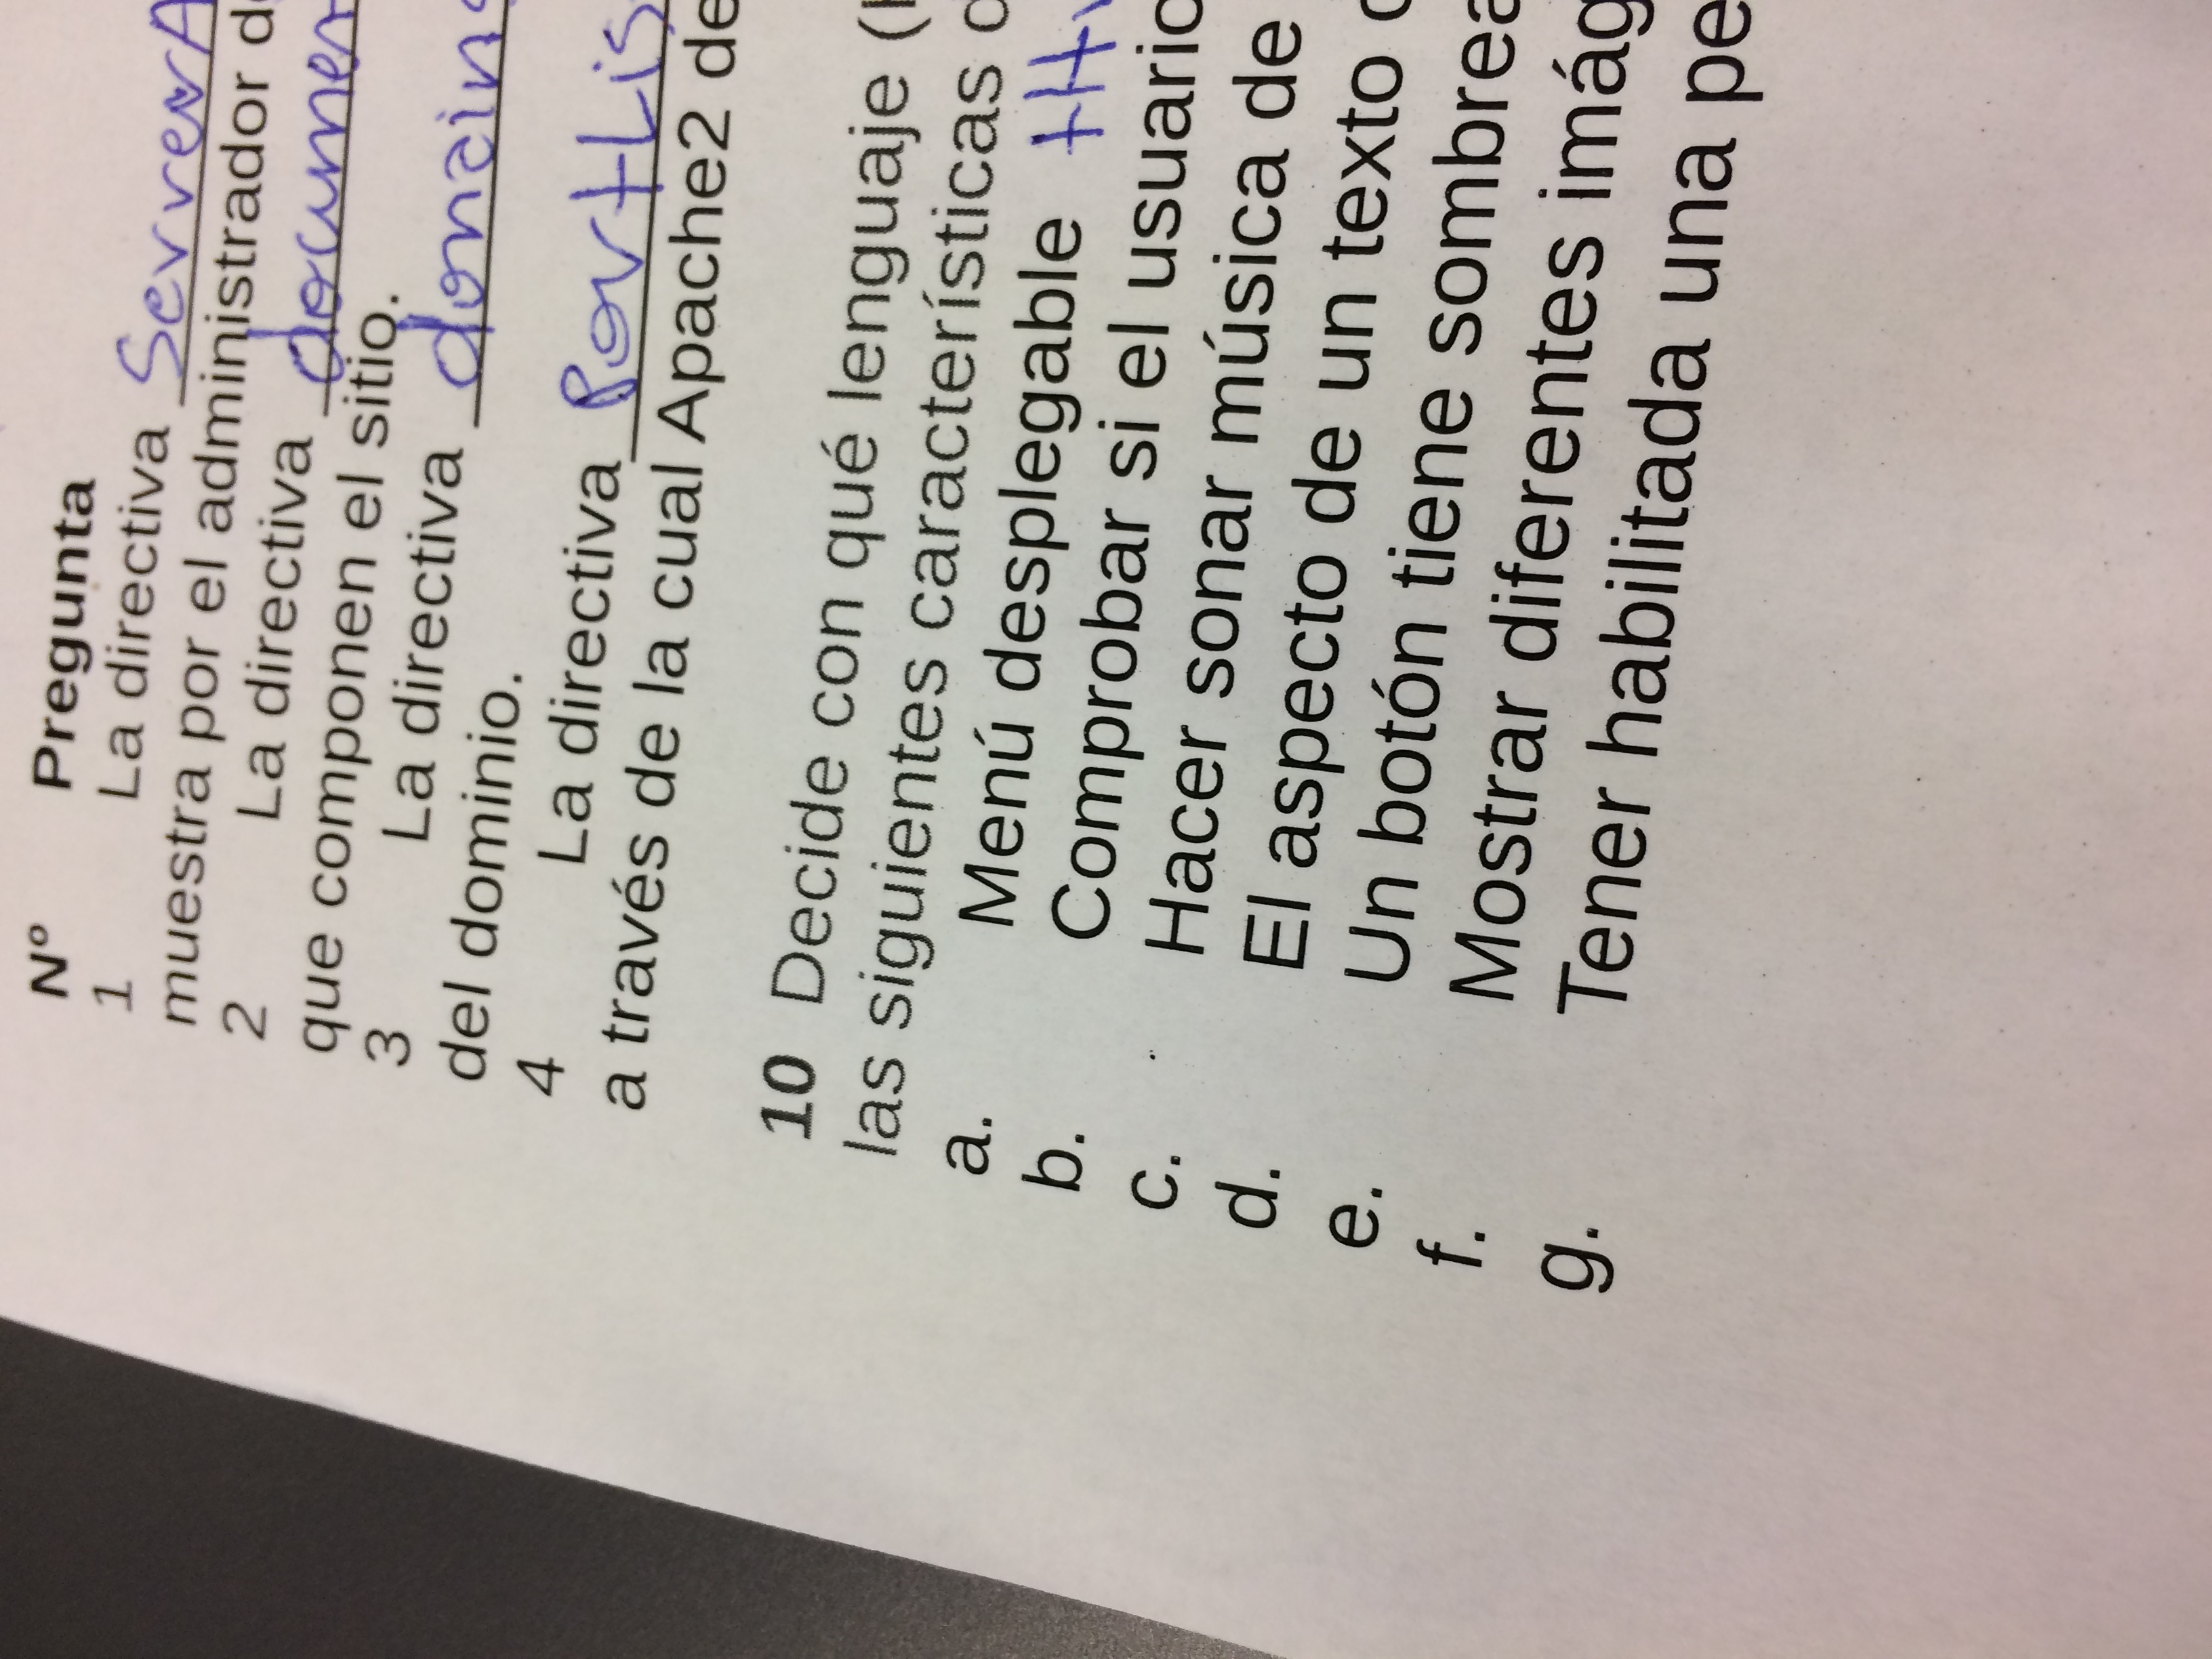 Nº Pregunta
1 La directiva ServverA
muestra por el administrador d
2 La directiva documen
que componen el sitio.
3 La directiva
del dominio.
4 La directiva PortLis
a través de la cual Apache2 de
10 Decide con qué lenguaje (
las siguientes características
a. Menú desplegable
b. Comprobar si el usuario
c. Hacer sonar música de
d. El aspecto de un texto
e. Un botón tiene sombrea
f. Mostrar diferentes imág
g. Tener habilitada una pe